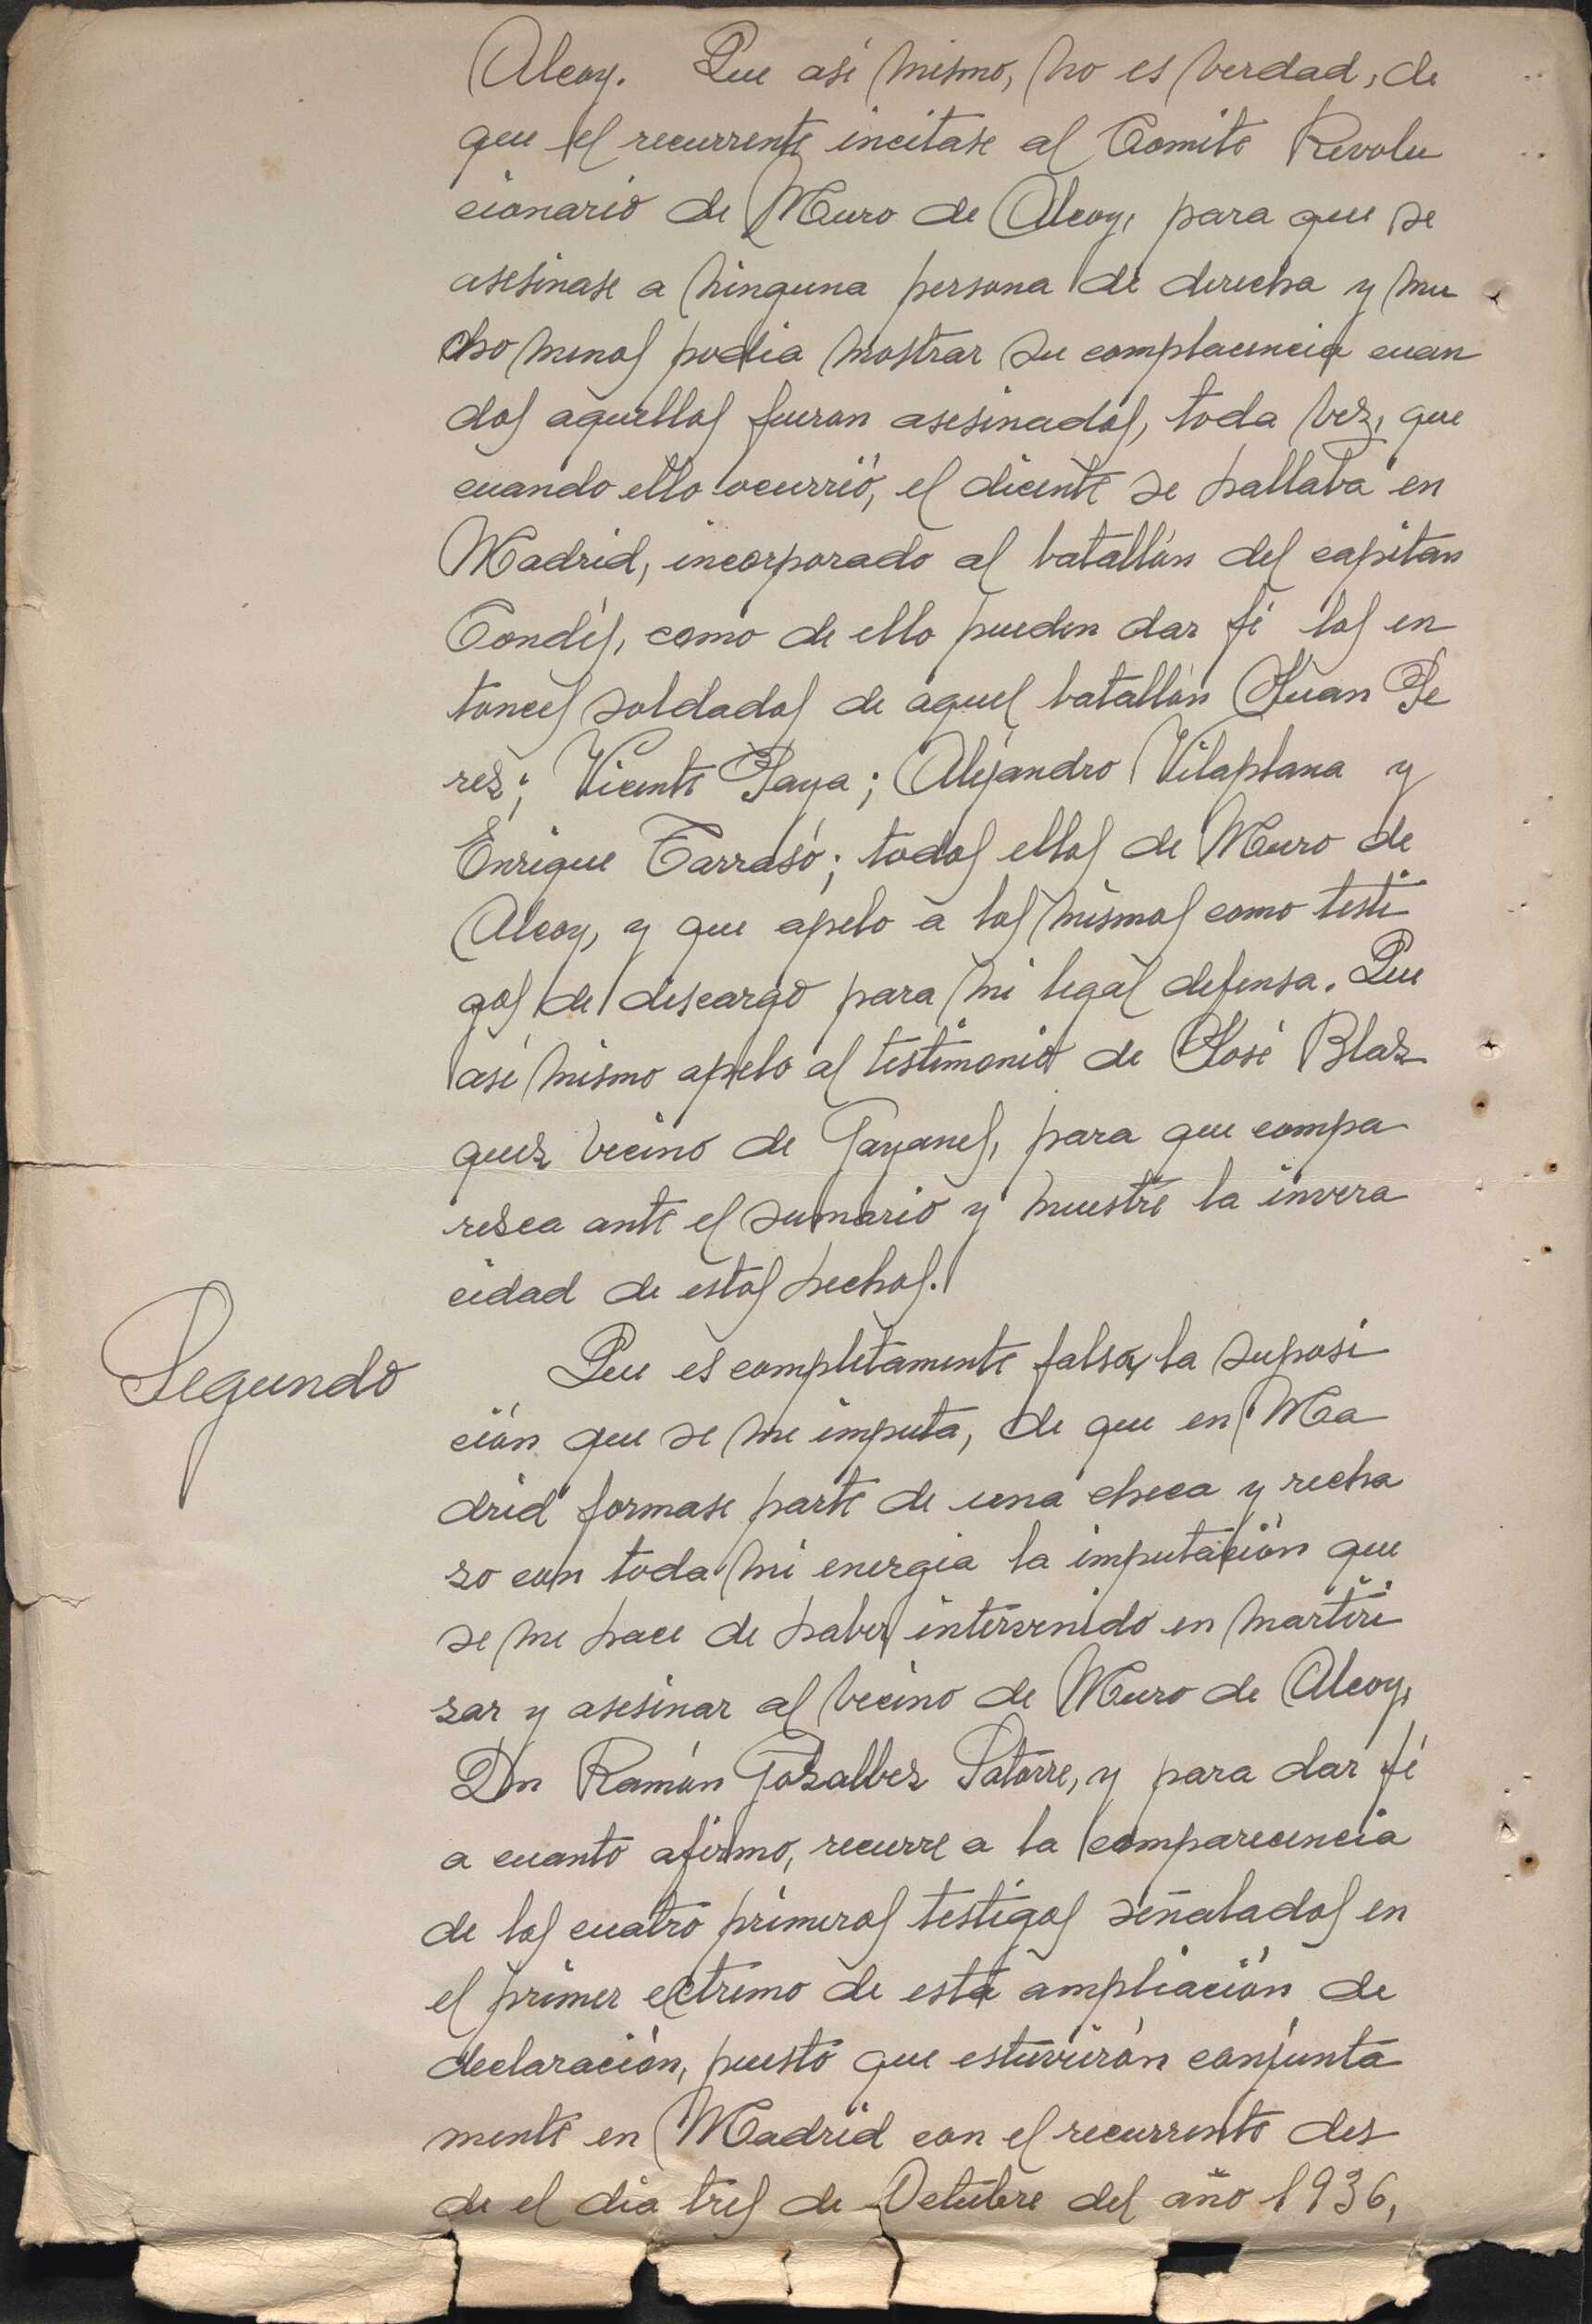 Alcoy. Que asi mismo, no es verdad, de
que el recurrente incitase al Comite Revolu
cionario de Muro de Alcoy, para que se
asesinase a ninguna persona de derecha y mu
cho menos podia mostrar su complacencia cuan
dos aquellos fueron asesinados, toda vez, que
cuando ello ocurrió, el dicente se hallaba en
Madrid, incorporado al batallón del capitan
Condés, como de ello pueden dar fé los en
tonces soldados de aquel batallón Juan Pe
rez; Vicente Paya; Alejandro Vilaplana y
Enrique Tarrasó; todos ellos de Muro de
Alcoy, y que apelo a los mismos como testi
gos de descargo para mi legal defensa. Que
asi mismo apelo al testimonio de José Blaz
quez vecino de Gayanes, para que compa
rezca ante el sumario y muestre la invera
cidad de estos hechos.
Segundo Que es completamente falsa, la suposi
ción que se me imputa, de que en Ma
drid formase parte de una checa y recha
zo con toda mi energia la imputación que
se me hace de haber intervenido en martiri
zar y asesinar al vecino de Muro de Alcoy,
Dn Ramón Gozalbez Satorre, y para dar fé
a cuanto afirmo, recurre a la comparecencia
de los cuatro primeros testigos señalados en
el primer extremo de esta ampliación de
declaración, puesto que estuvieron conjunta
mente en Madrid con el recurrente des
de el dia tres de Octubre del año 1936,